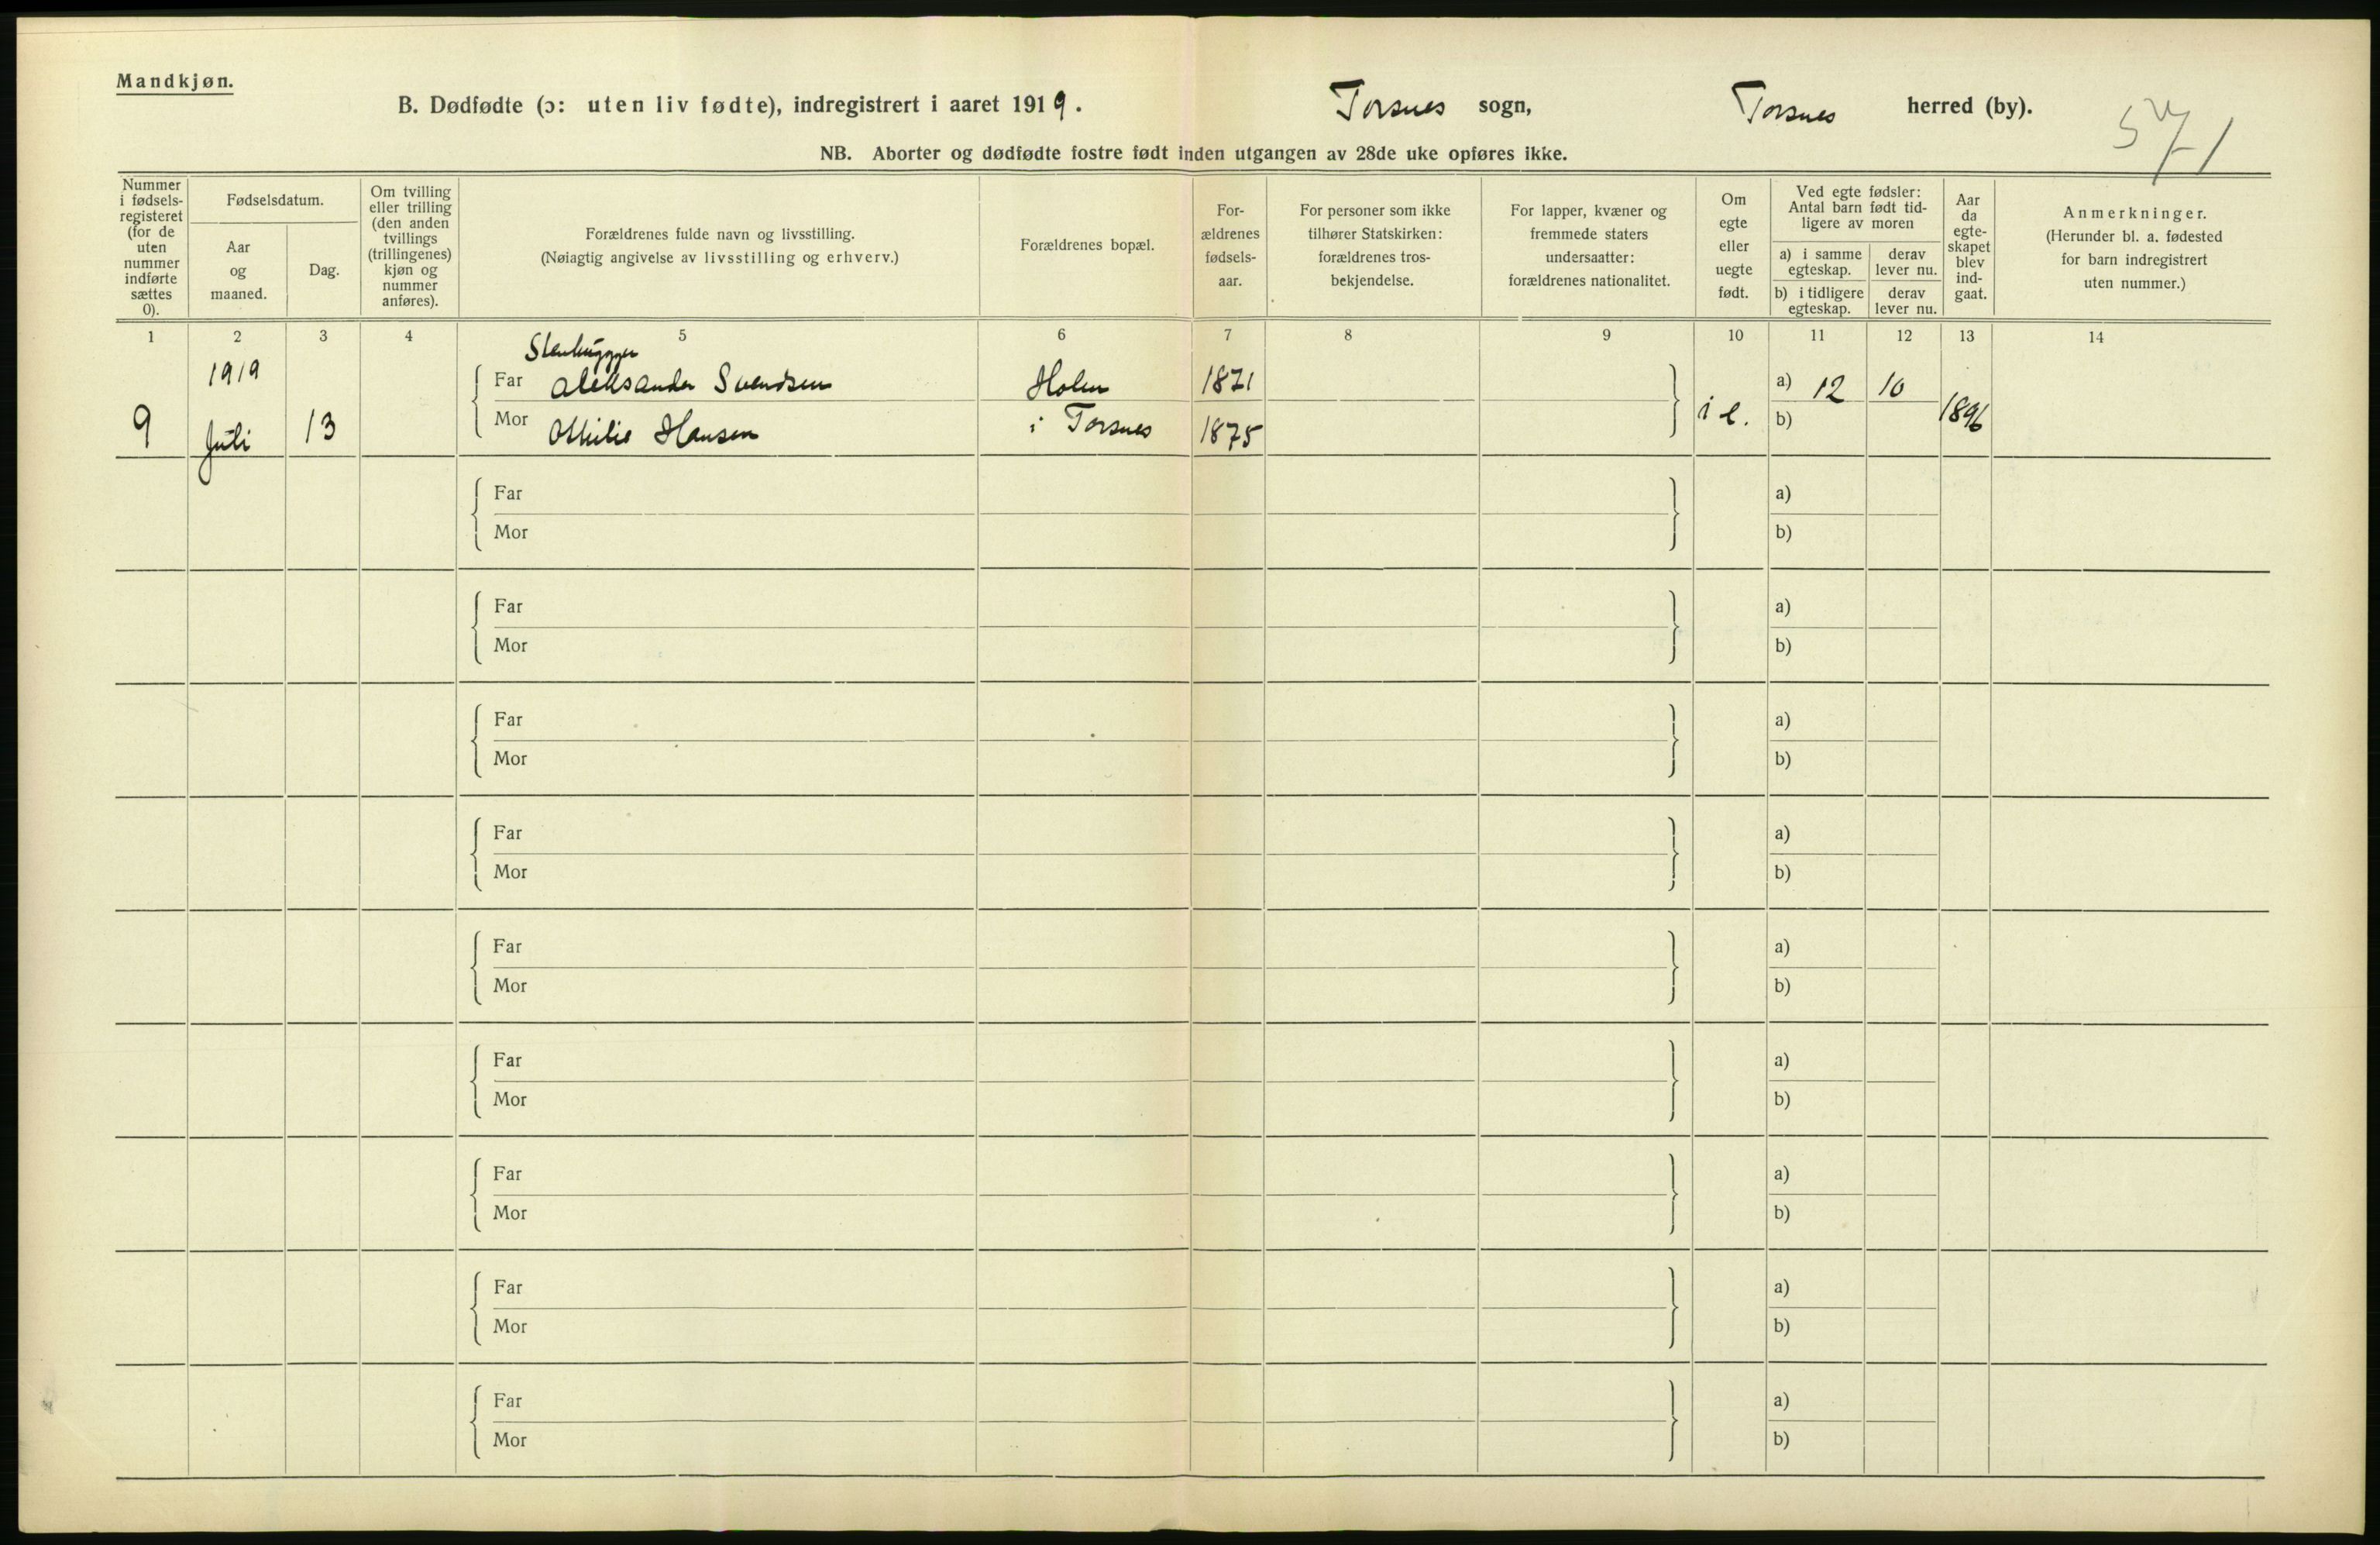 Mandkjøn.
B. Dødfødte (ɔ: uten liv fødte), indregistrert i aaret 1919. Torsnes sogn, Torsnes herred (by).
571
NB. Aborter og dødfødte fostre født inden utgangen av 28de uke opføres ikke.
Nummer
i fødsels-
registeret
(for de
uten
nummer
indførte
sættes
0).
Fødselsdatum.
Aar
og
maaned.
Dag.
Om tvilling
eller trilling
(den anden
tvillings
(trillingenes)
kjøn og
nummer
anføres).
Forældrenes fulde navn og livsstilling.
(Nøiagtig angivelse av livsstilling og erhverv.)
Forældrenes bopæl.
For-
ældrenes
fødsels-
aar.
For personer som ikke
tilhører Statskirken:
forældrenes tros-
bekjendelse.
For lapper, kvæner og
fremmede staters
undersaatter:
forældrenes nationalitet.
Om
egte
eller
uegte
født.
Ved egte fødsler:
Antal barn født tid-
ligere av moren
a) i samme
egteskap.
derav
lever nu.
b) i tidligere
egteskap.
derav
lever nu.
Aar
da
egte-
skapet
blev
ind-
gaat.
Anmerkninger.
(Herunder bl. a. fødested
for barn indregistrert
uten nummer.)
1 2 3 4 5 6 7 8 9 10 11 12 13 14
Stenhugger
1919 Far Aleksander Svendsen Holen 1871 a) 12 10
9 Juli 13 Mor Othilie Hansen i Torsnes 1875 i e. b) 1896
Far a)
Mor b)
Far a)
Mor b)
Far a)
Mor b)
Far a)
Mor b)
Far a)
Mor b)
Far a)
Mor b)
Far a)
Mor b)
Far a)
Mor b)
Far a)
Mor b)